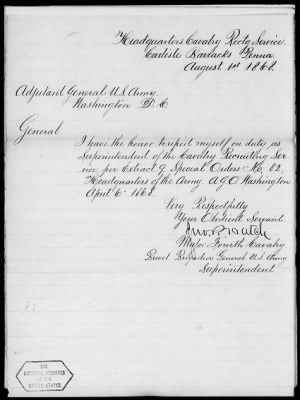 Headquarters Cavalry Rectg Service.
Carlisle Barracks Penna.
August 1st 1868.
Adjutant General U.S. Army.
Washington D.C.
General
I have the honor to report myself on duty as
Superintendent of the Cavalry Recruiting Ser
vice, per Extract 9. Special Orders No. 82.
Headquarters of the Army. A.G.O. Washington
April 6" 1868.
Very Respectfully
Your Obedient Servant.
Major Fourth Cavalry
Brevet Brigadier General U.S. Army
Superintendent.
THE
NATIONAL ARCHIVES
OF THE
UNITED STATES